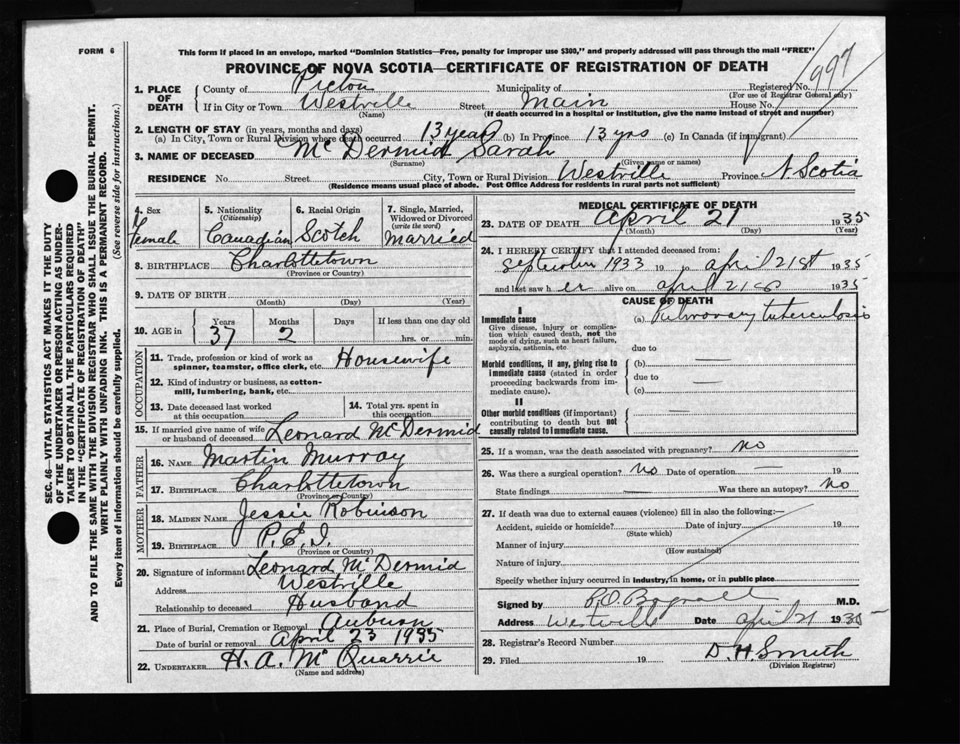 FORM 6
This form if placed in an envelope, marked "Dominion Statistics—Free, penalty for improper use $300," and properly addressed will pass through the mail "FREE"
PROVINCE OF NOVA SCOTIA—CERTIFICATE OF REGISTRATION OF DEATH
997
SEC. 46—VITAL STATISTICS ACT MAKES IT THE DUTY
OF THE UNDERTAKER OR PERSON ACTING AS UNDER-
TAKER TO OBTAIN ALL THE PARTICULARS REQUIRED
IN THE "CERTIFICATE OF REGISTRATION OF DEATH"
AND TO FILE THE SAME WITH THE DIVISION REGISTRAR WHO SHALL ISSUE THE BURIAL PERMIT.
WRITE PLAINLY WITH UNFADING INK. THIS IS A PERMANENT RECORD.
Every item of information should be carefully supplied. (See reverse side for instructions.)
1. PLACE OF DEATH
County of Pictou Municipality of Registered No.
(For use of Registrar General only)
If in City or Town Westville Street Main House No.
(Name) (If death occurred in a hospital or institution, give the name instead of street and number)
2. LENGTH OF STAY (in years, months and days)
(a) In City, Town or Rural Division where death occurred 13 years (b) In Province 13 yrs (c) In Canada (if immigrant)
3. NAME OF DECEASED McDermid Sarah
(Surname) (Given name or names)
RESIDENCE No. Street City, Town or Rural Division Westville Province N Scotia
(Residence means usual place of abode. Post Office Address for residents in rural parts not sufficient)
4. Sex
Female
5. Nationality
(Citizenship)
Canadian
6. Racial Origin
Scotch
7. Single, Married,
Widowed or Divorced
(write the word)
Married
8. BIRTHPLACE Charlottetown
(Province or Country)
9. DATE OF BIRTH
(Month) (Day) (Year)
10. AGE in
Years Months Days If less than one day old
37 2 hrs. or min.
OCCUPATION
11. Trade, profession or kind of work as
spinner, teamster, office clerk, etc. Housewife
12. Kind of industry or business, as cotton-
mill, lumbering, bank, etc.
13. Date deceased last worked
at this occupation
14. Total yrs. spent in
this occupation
15. If married give name of wife
or husband of deceased Leonard McDermid
FATHER
16. NAME Martin Murray
17. BIRTHPLACE Charlottetown
(Province or Country)
MOTHER
18. MAIDEN NAME Jessie Robinson
19. BIRTHPLACE P.E.I.
(Province or Country)
20. Signature of informant Leonard McDermid
Address Westville
Relationship to deceased Husband
21. Place of Burial, Cremation or Removal Auburn
Date of burial or removal April 23 1935
22. UNDERTAKER H. A. McQuarrie
(Name and address)
MEDICAL CERTIFICATE OF DEATH
23. DATE OF DEATH April 21 1935
(Month) (Day) (Year)
24. I HEREBY CERTIFY that I attended deceased from:
September 1933 19 to April 21st 1935
and last saw her alive on April 21st 1935
CAUSE OF DEATH
I
Immediate cause
Give disease, injury or complica-
tion which caused death, not the
mode of dying, such as heart failure,
asphyxia, asthenia, etc.
(a) Pulmonary tuberculosis
due to
Morbid conditions, if any, giving rise to
immediate cause (stated in order
proceeding backwards from im-
mediate cause).
(b)
due to
(c)
II
Other morbid conditions (if important)
contributing to death but not
causally related to immediate cause.
25. If a woman, was the death associated with pregnancy? no
26. Was there a surgical operation? no Date of operation — 19
State findings — Was there an autopsy? no
27. If death was due to external causes (violence) fill in also the following:—
Accident, suicide or homicide? Date of injury 19
(State which)
Manner of injury
(How sustained)
Nature of injury
Specify whether injury occurred in industry, in home, or in public place
Signed by M.D.
Address Westville Date April 21 1935
28. Registrar's Record Number
29. Filed 19 D. H. Smith
(Division Registrar)